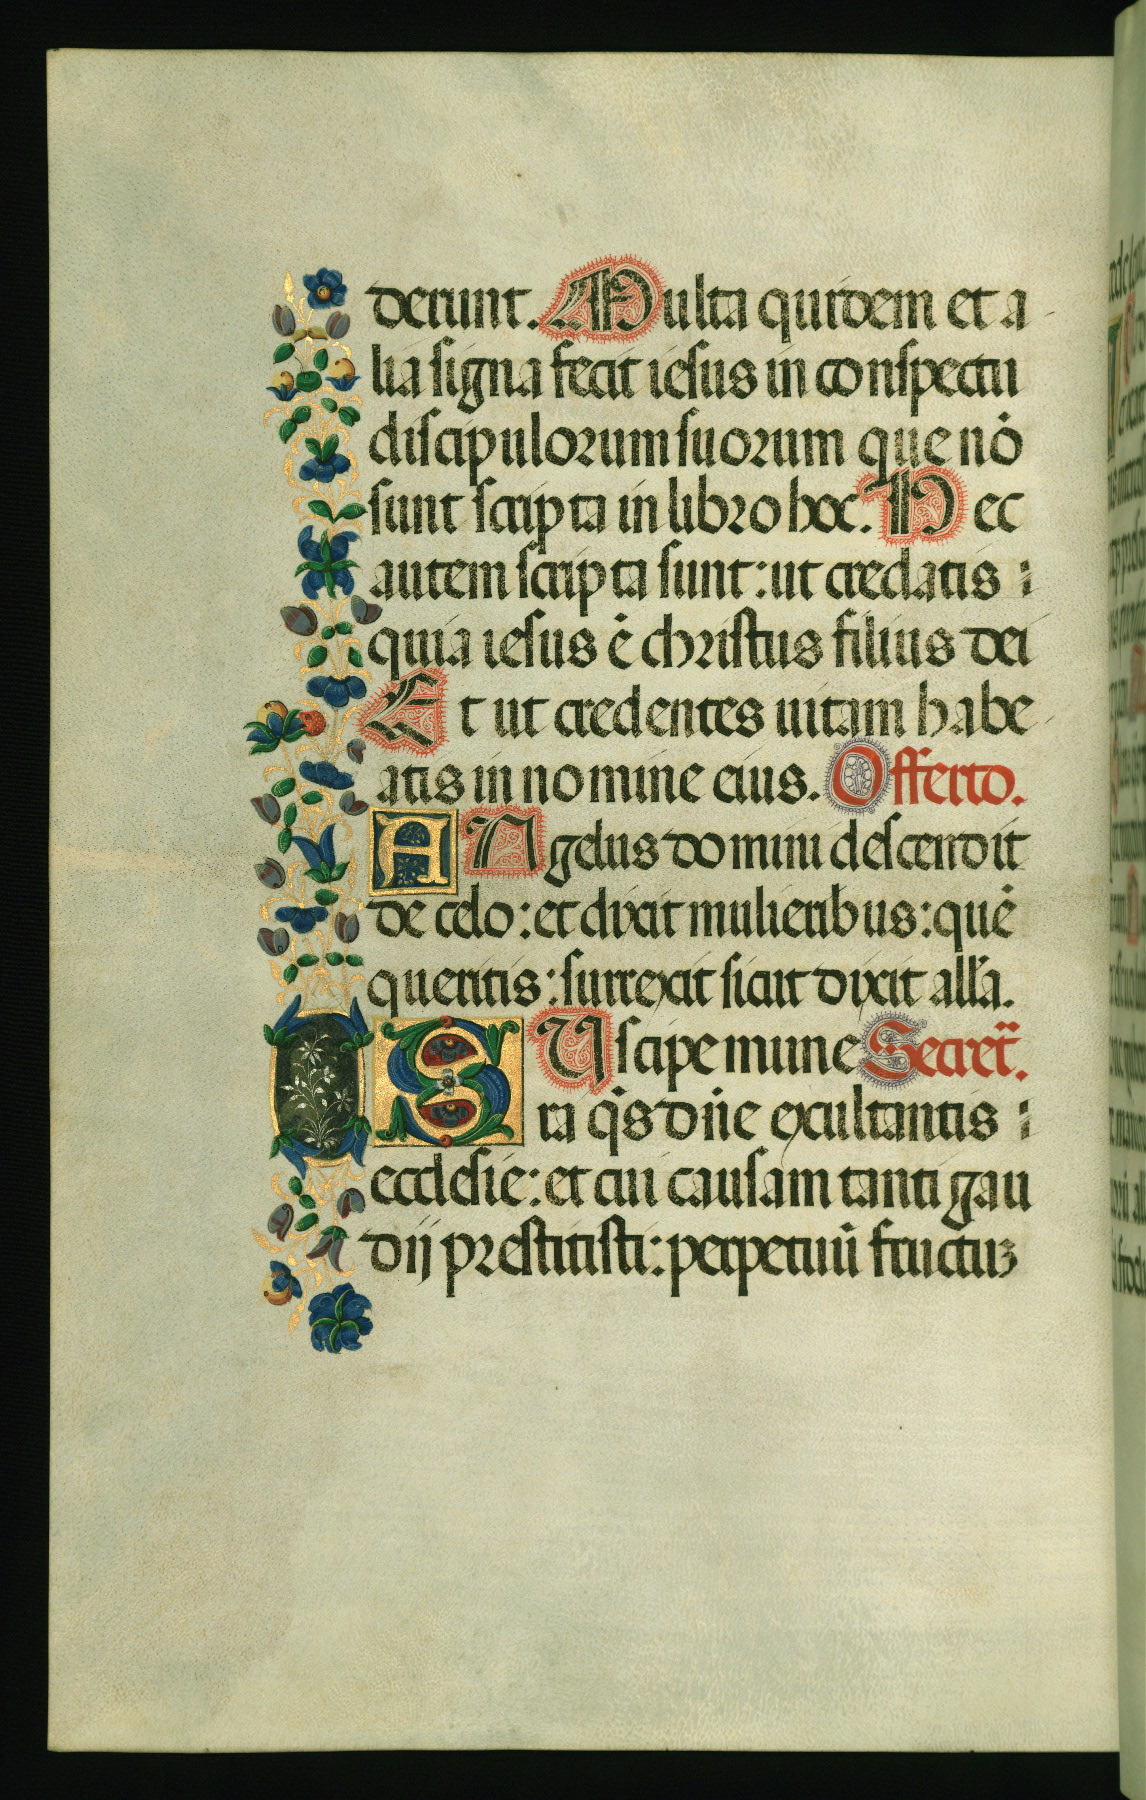 derunt. Multa quidem et a
lia signa fecit iesus in conspectu
discipulorum suorum que nō
sunt scripta in libro hoc. Hec
autem scripta sunt: ut credatis
quia iesus ē christus filius dei
Et ut credentes uitam habe
atis in nomine eius. Offerto.
ANgelus domini descendit
de celo: et dixit mulieribus: quē
queritis: surrexit sicut dixit alla.
SUscipe mune Secret.
ra qs dn̄e exultantis
ecclesie: et cui causam tanti gau
dij prestitisti: perpetuū fructuȝ